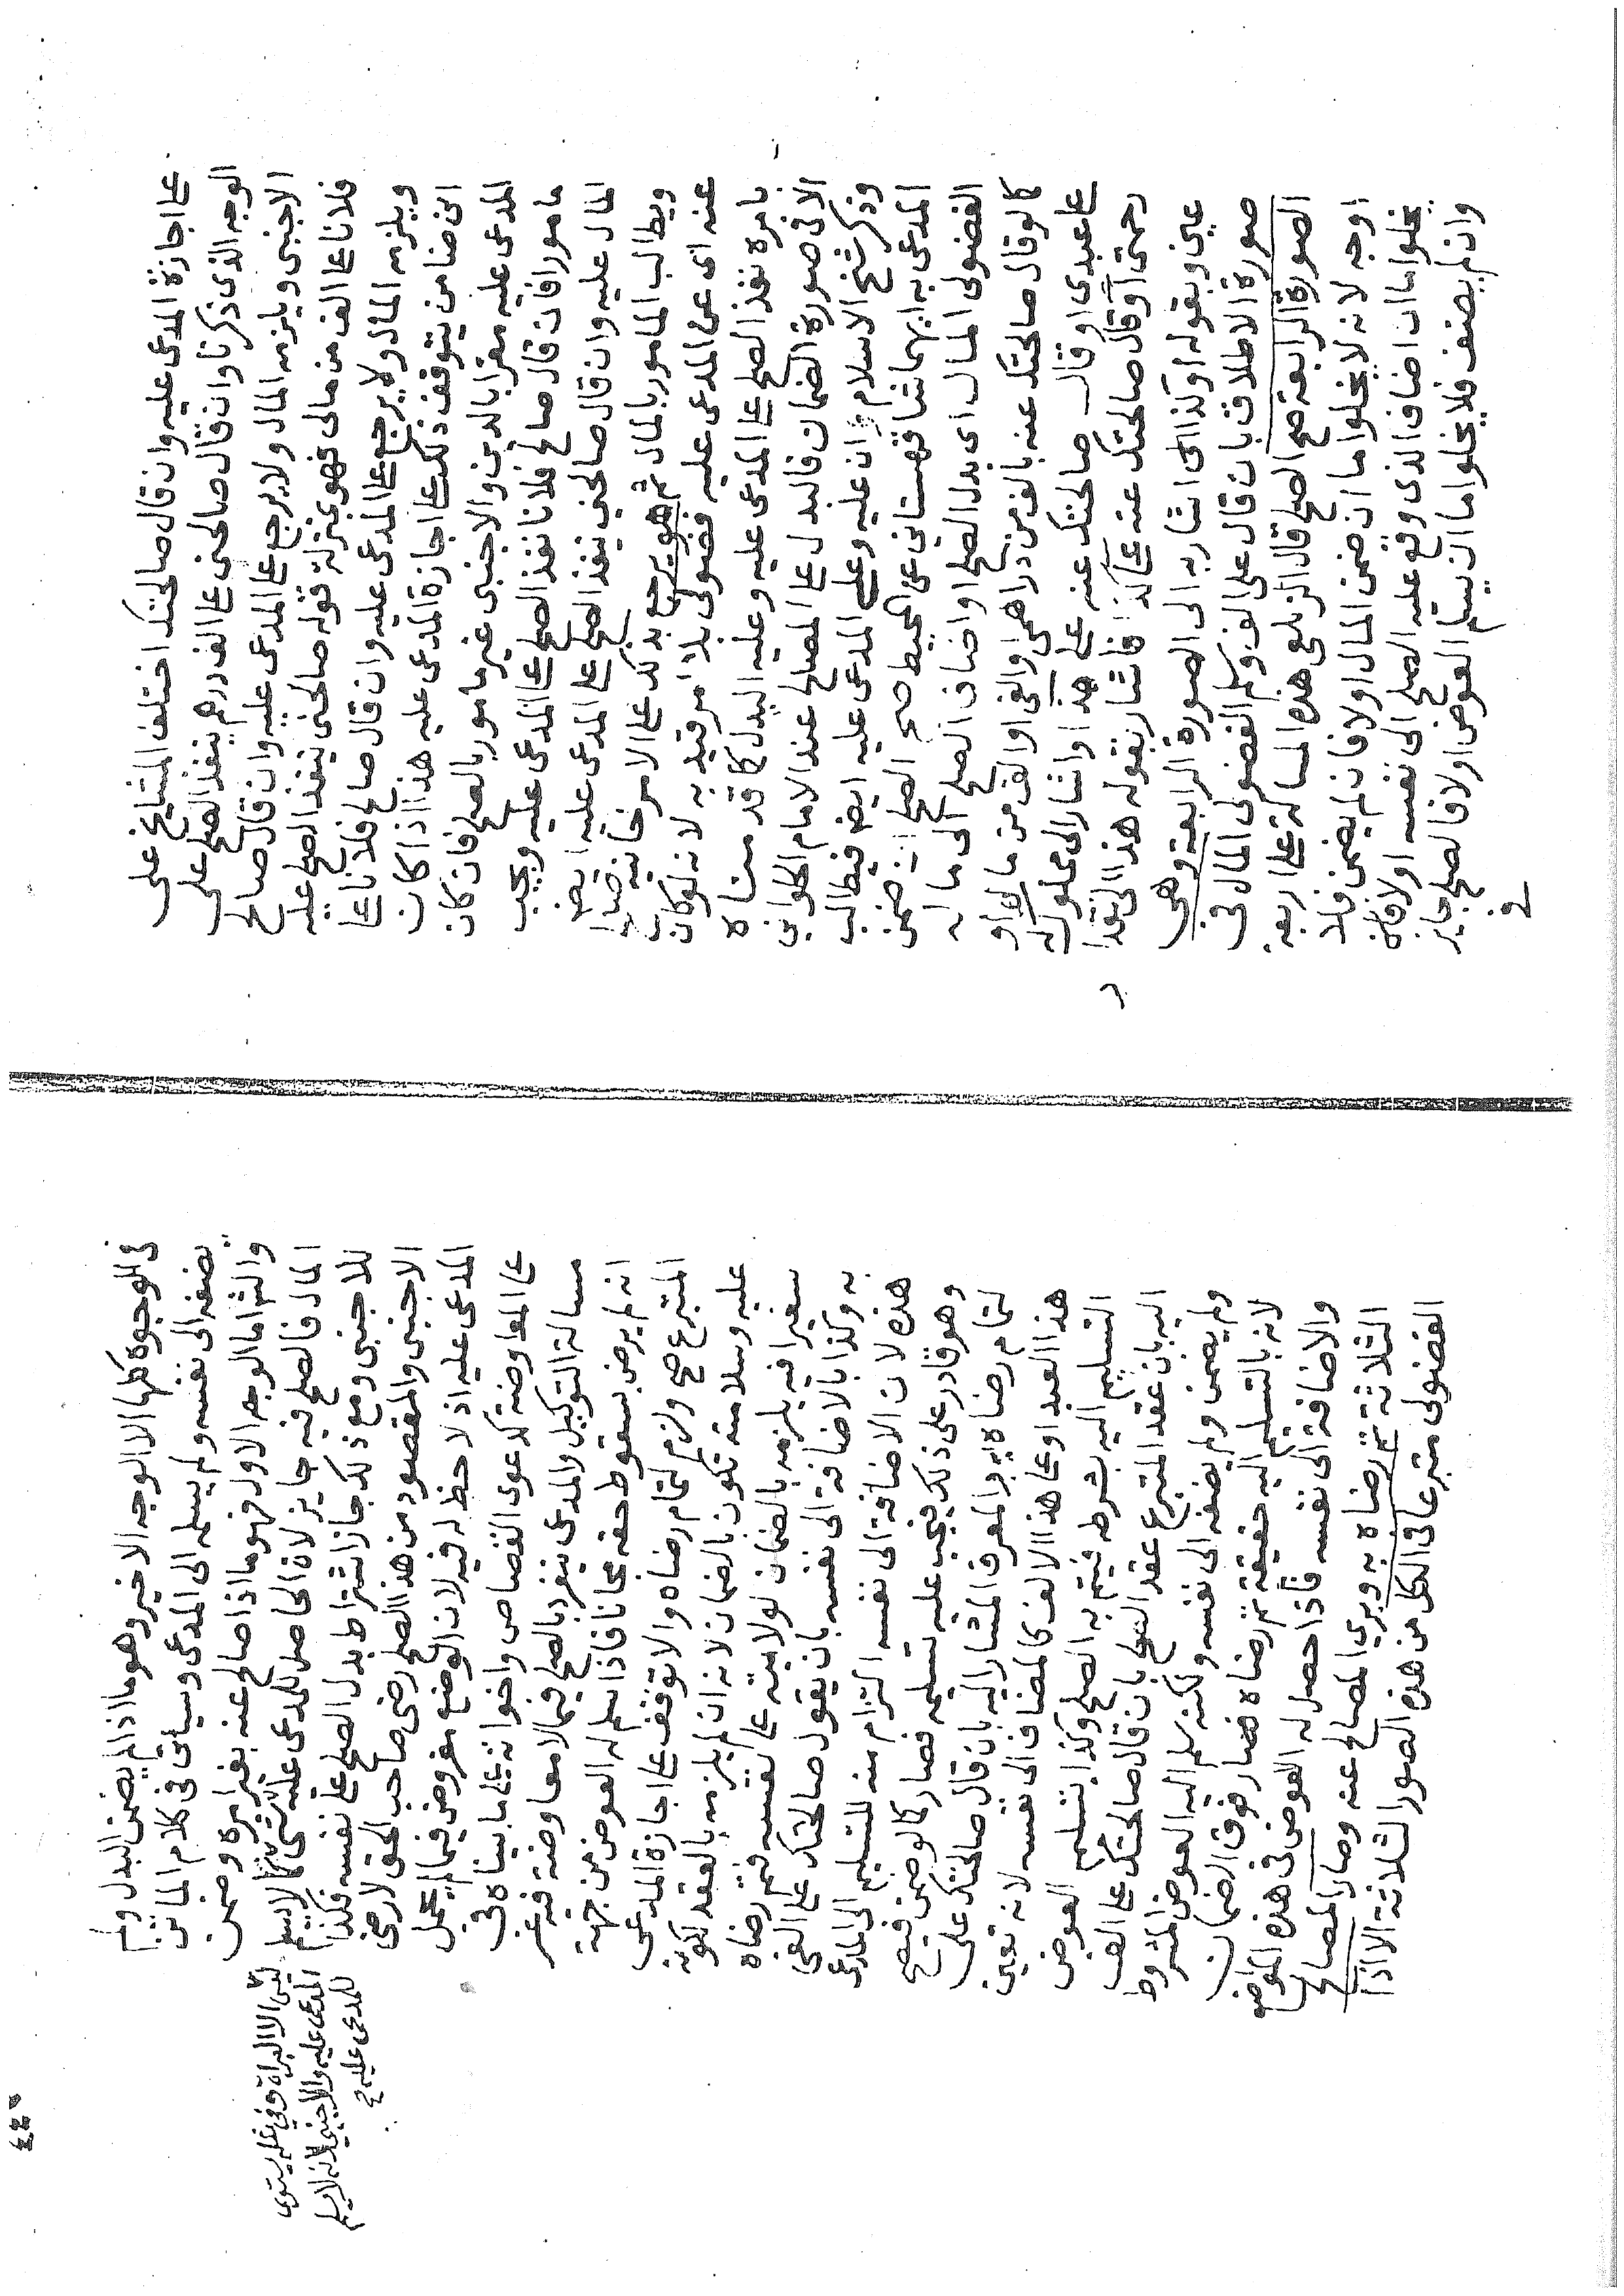 على اجازة المدعى عليه وان قال صالحتك اختلف المشايخ على
الوجه الذى ذكرنا وان قال صالحنى على الف درهم ينفذ الصلح على
الاجنبى ويلزمه المال ولا يرجع على المدعى عليه وان قال صالح
فلانا على الف من مالى فهو بمنزلة قوله صالحنى ينفذ الصلح عليه
ويلزمه المال ولا يرجع على المدعى عليه وان قال صالح فلانا على
انى ضامن يتوقف ذلك على اجازة المدعى عليه هذا اذا كان
المدعى عليه مقرا بالدين والاجنبى غير مامور بالصلح فان كان
مامورا فان قال صالح فلانا نفذ الصلح على المدعى عليه ويجب
المال عليه وان قال صالحنى ينفذ الصلح على المدعى عليه ايضا
ويطالب المامور بالمال ثم هو يرجع بذلك على الامر خانيه
عنه اى عن المدعى عليه فضولى بلا امر قيد به لانه لو كان
بامره نفذ الصلح على المدعى عليه وعليه البدل كما قدمناه
الا فى صورة الضمان فالبدل على المصالح عند الامام الحلوانى
وذكر شيخ الاسلام ان عليه وعلى المدعى عليه ايضا فيطالب
المدعى به ايهما شا قهستانى عن المحيط صح الصلح ان ضمن
الفضولى المال اى بدل الصلح او اضاف الصلح الى ماله
كما لو قال صالحتك عنه بالف من دراهمى والفى او الف من مالى او
على عبدى او قال صالحتك عنه على هذا واشار الى مملوكه
رحمتى او قال صالحتك عنه على كذا فاشار بقوله هذا الى نقدا
عين وبقوله او كذا الى اشار به الى الصورة الرابعة وهى
صورة الاطلاق بان قال على الف وسلم الفضولى المال فى
الصورة الرابعة صح الصلح قال الزيلعى هذه المسالة على اربعة
اوجه لانه لا يخلوا ما ان ضمن المال او لا فان لم يضمن فلا
يخلوا ما ان اضاف الذى وقع عليه الصلح الى نفسه او لا فان
وان لم يضف فلا يخلوا ما ان يسلم العوض او لا فالصلح جايز
فى
فى الوجوه كلها الا الوجه الاخير وهو ما اذا لم يضمن البدل ولم
يضفه الى نفسه ولم يسلمه الى المدعى وسياتى فى كلام الماتن
والشر اما الوجه الاول فهو ما اذا صالح عنه بغير امره وضمن
المال فالصلح فيه جايز لان الحاصل للمدعى عليه
للاجنبى ومع ذلك جاز اشتراط بدل الصلح على نفسه فكذا
الاجنبى والمقصود من هذا الصلح رضى صاحب الحق لا رضى
المدعى عليه اذ لا حظ له فيه لان الوضع مفروض فيما لم يحمل
على المعاوضة كدعوى القصاص واخواته على ما بيناه فى
مسالة التوكيل والمدعى ينفرد بالصلح فيما لا معاوضة فيه غير
انه لم يرض بسقوط حقه مجانا فاذا سلم له العوض من جهة
المتبرع صح ولزم لتمام رضاه والا توقف على اجازة المدعى
عليه وسلامته تكون بالضمان لانه ان لم يلزمه بالعقد لكونه
سفيرا فيه يلزمه بالضمان لولايته على نفسه فتم رضاه
به وكذا بالاضافة الى نفسه بان يقول صالحتك على الفى
هذه لان الاضافة الى نفسه التزام منه للتسليم الى المدعى
وهو قادر على ذلك فيجب عليه تسليمه فصار كما لو ضمن فيصح
لتمام رضاه به والمعرف المشار اليه بان قال صالحتك على
هذا العبد او على هذا الالف كالمضاف الى نفسه لانه تعين
التسليم اليه بشرطه فيتم به الصلح وكذا بتسليم العوض
اليه بان عقد المتبرع عقد الصلح بان قال صالحتك على الف
ولم يضمن ولم يضفه الى نفسه ولكنه سلم اليه العوض المشروط
لانه بالتسليم اليه حقيقة تم رضاه فصار فوق الضمان
والاضافة الى نفسه فاذا حصل له العوض فى هذه المواضع
الثلاثة تم رضاه به وبرى المصالح عنه وصار المصالح
الفضولى متبرعا فى الكل من هذه الصور الثلاثة الا اذا
ليس الا البراة وفى مثله يستوى
المدعى عليه والاجنبى لانه لا يسلم
للمدعى عليه